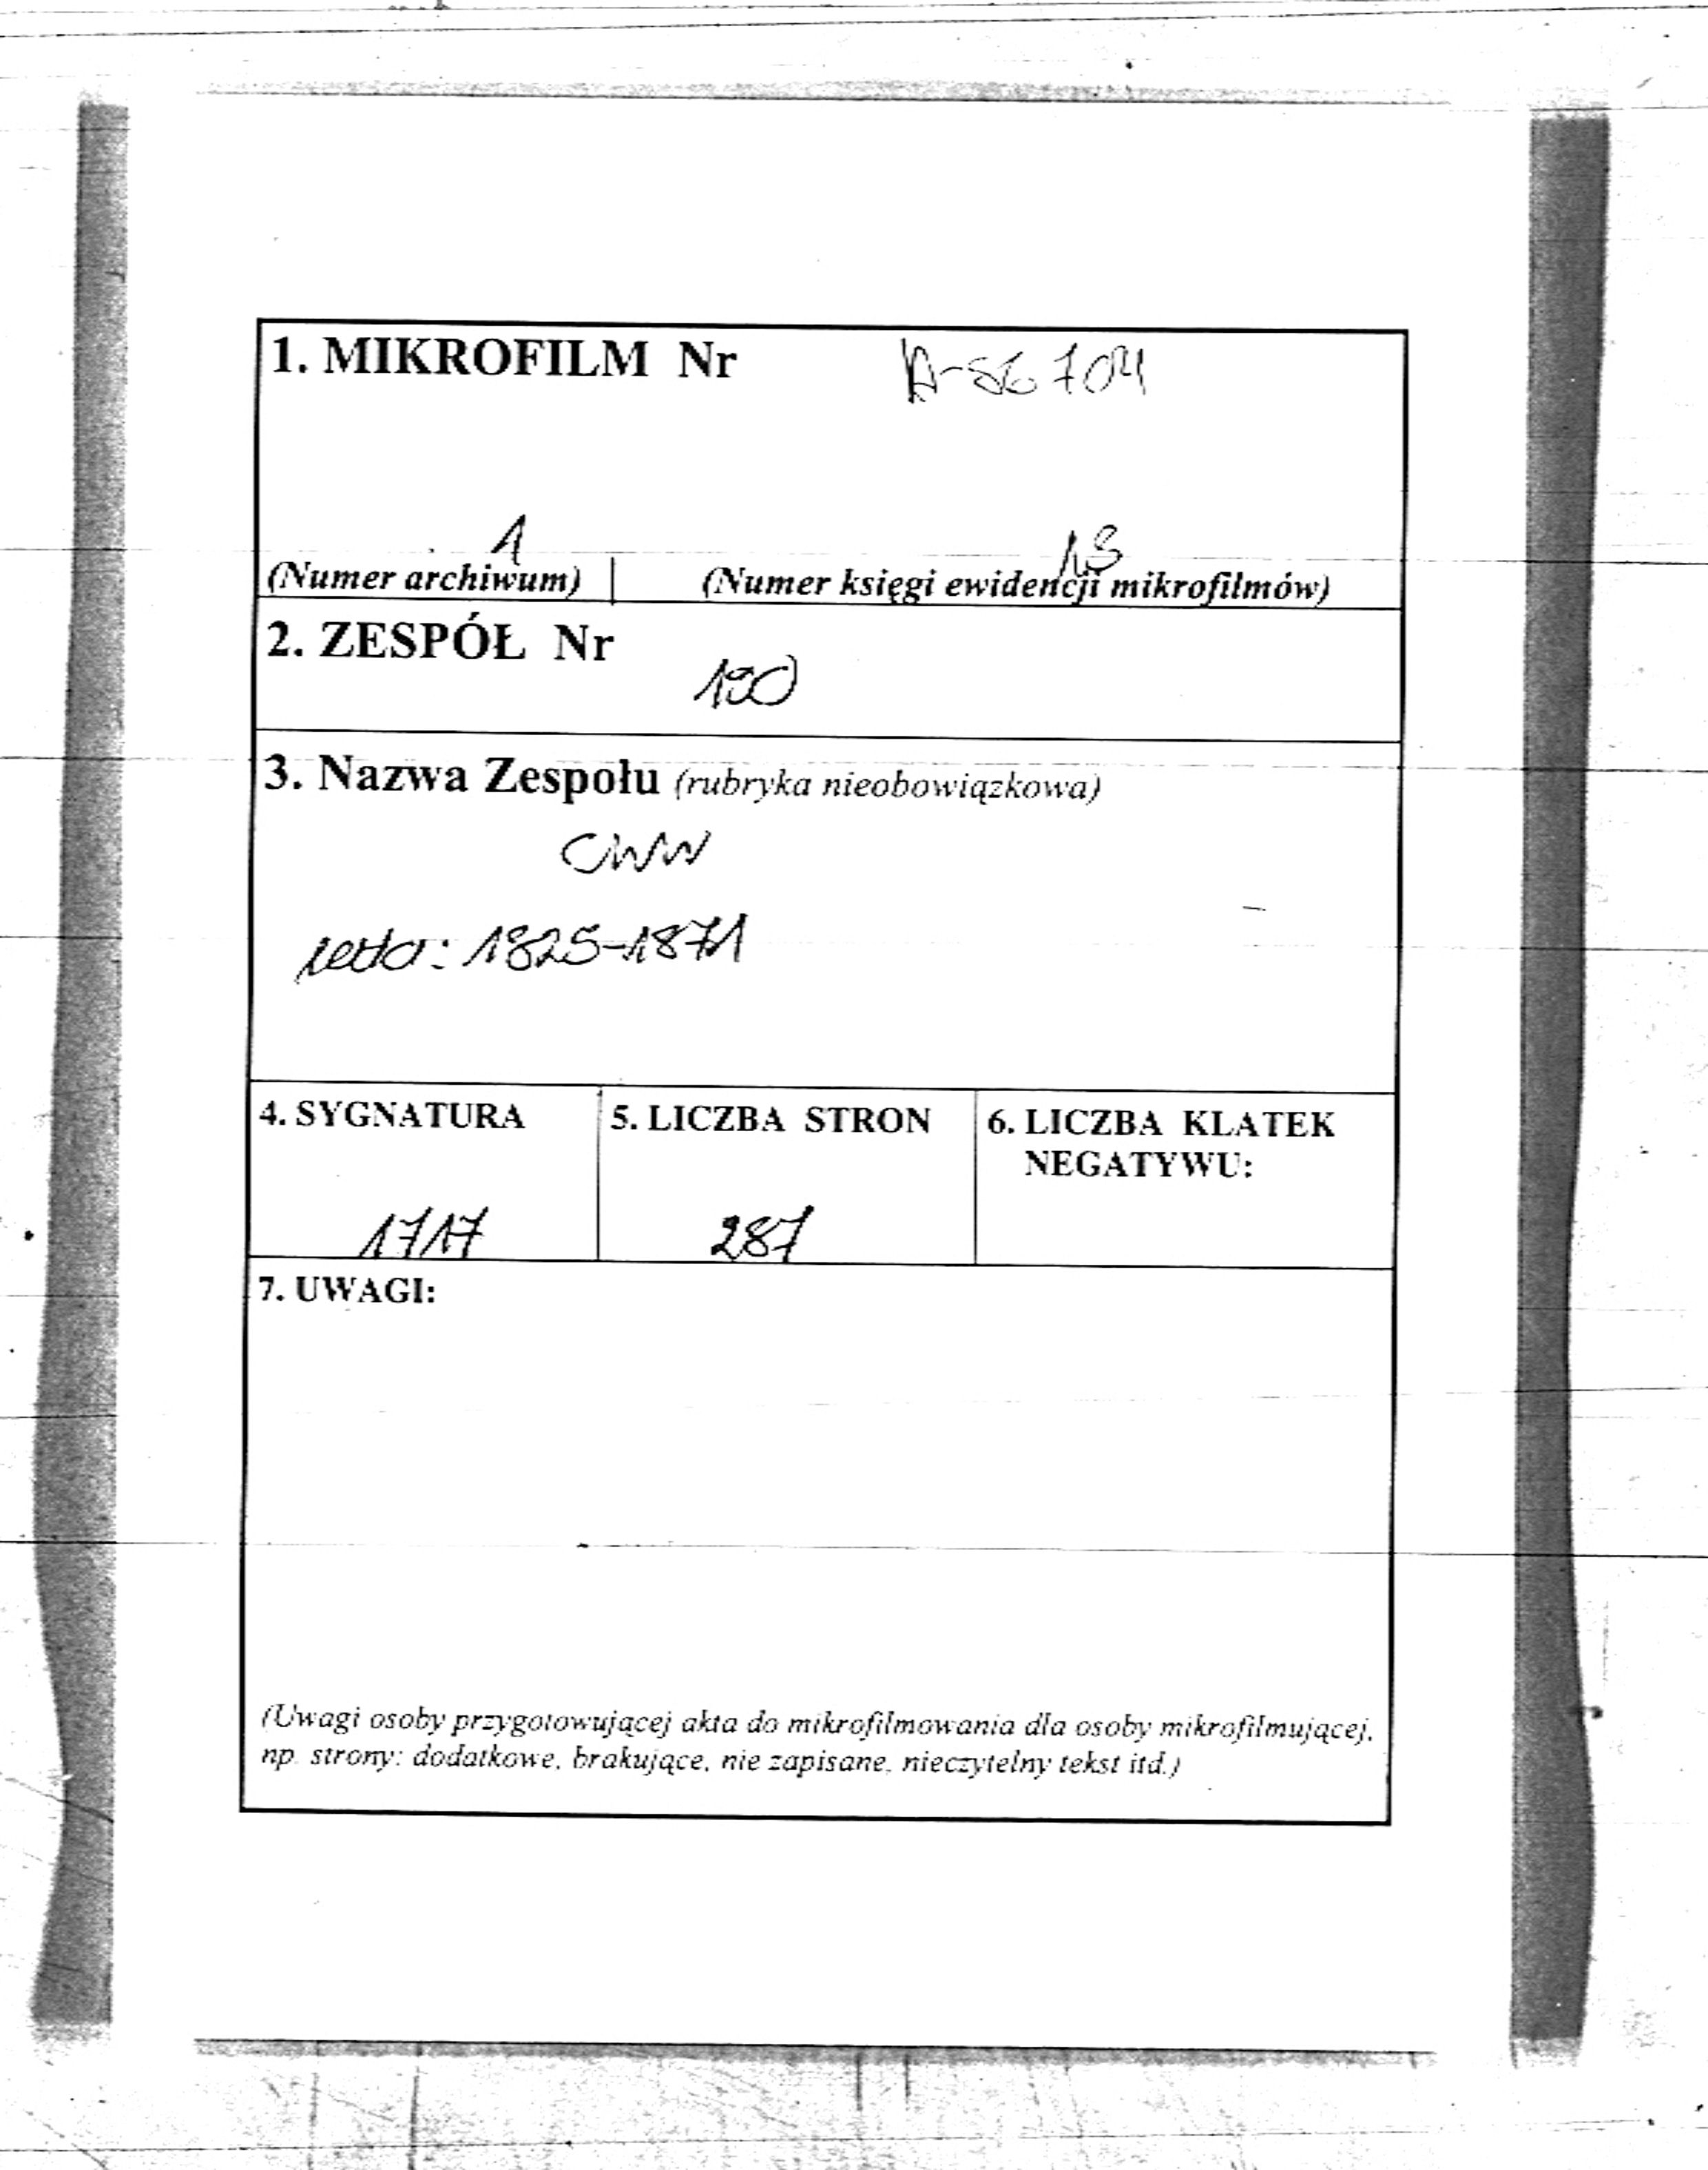 1. MIKROFILM Nr A-56704
1 13
(Numer archiwum) (Numer księgi ewidencji mikrofilmów)
2. ZESPÓŁ Nr
190
3. Nazwa Zespołu (rubryka nieobowiązkowa)
CWW
1825-1871
4. SYGNATURA 5. LICZBA STRON 6. LICZBA KLATEK
NEGATYWU:
1717 287
7. UWAGI:
(Uwagi osoby przygotowującej akta do mikrofilmowania dla osoby mikrofilmującej,
np. strony: dodatkowe, brakujące, nie zapisane, nieczytelny tekst itd.)